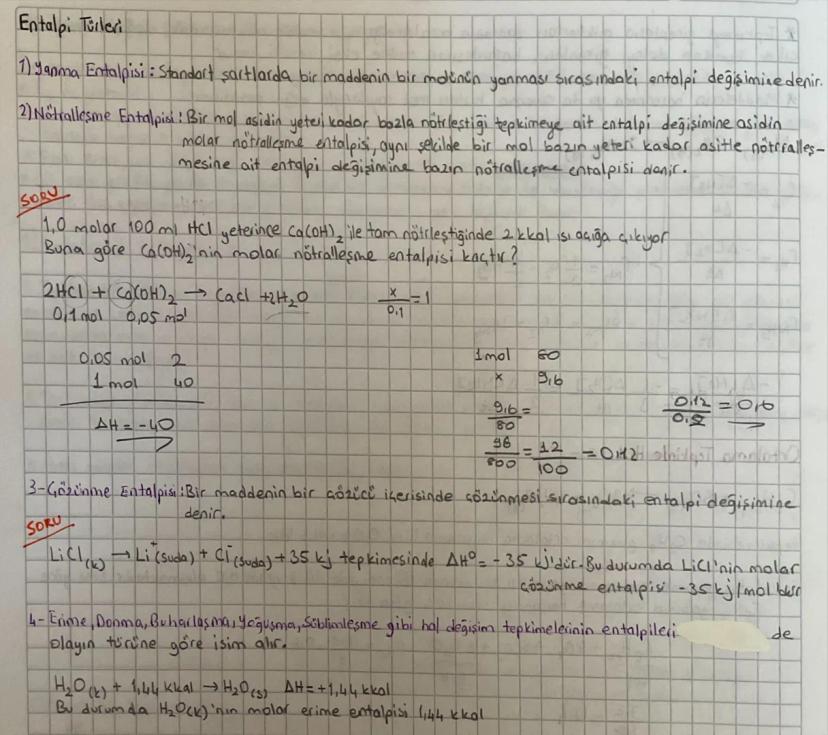 Entalpi Türleri
1) Yanma Entalpisi : Standart şartlarda bir maddenin bir molünün yanması sırasındaki entalpi değişimine denir.
2) Nötralleşme Entalpisi : Bir mol asidin yeteri kadar bazla nötrleştiği tepkimeye ait entalpi değişimine asidin
molar nötralleşme entalpisi, aynı şekilde bir mol bazın yeteri kadar asitle nötralleş-
mesine ait entalpi değişimine bazın nötralleşme entalpisi denir.
SORU
1,0 molar 100 ml HCl yeterince Ca(OH)₂ ile tam nötrleştiğinde 2 kkal ısı açığa çıkıyor
Buna göre Ca(OH)₂'nin molar nötralleşme entalpisi kaçtır?
2HCl + Ca(OH)₂ → CaCl + 2H₂O x/0,1 = 1
0,1 mol 0,05 mol
0,05 mol 2
1 mol 40
ΔH = -40
1 mol 80
x 9,6
9,6/80 =
96/800 = 12/100 = 0,12
0,12/0,2 = 0,6
3- Çözünme Entalpisi : Bir maddenin bir çözücü içerisinde çözünmesi sırasındaki entalpi değişimine
denir.
SORU
LiCl(k) → Li⁺(suda) + Cl⁻(suda) + 35 kj tepkimesinde ΔH⁰ = -35 kj'dür. Bu durumda LiCl'nin molar
çözünme entalpisi -35 kj/mol'dür
4- Erime, Donma, Buharlaşma, Yoğuşma, Süblimleşme gibi hal değişim tepkimelerinin entalpileri de
olayın türüne göre isim alır.
H₂O(k) + 1,44 kkal → H₂O(s) ΔH = +1,44 kkal
Bu durumda H₂O(k)'nın molar erime entalpisi 1,44 kkal